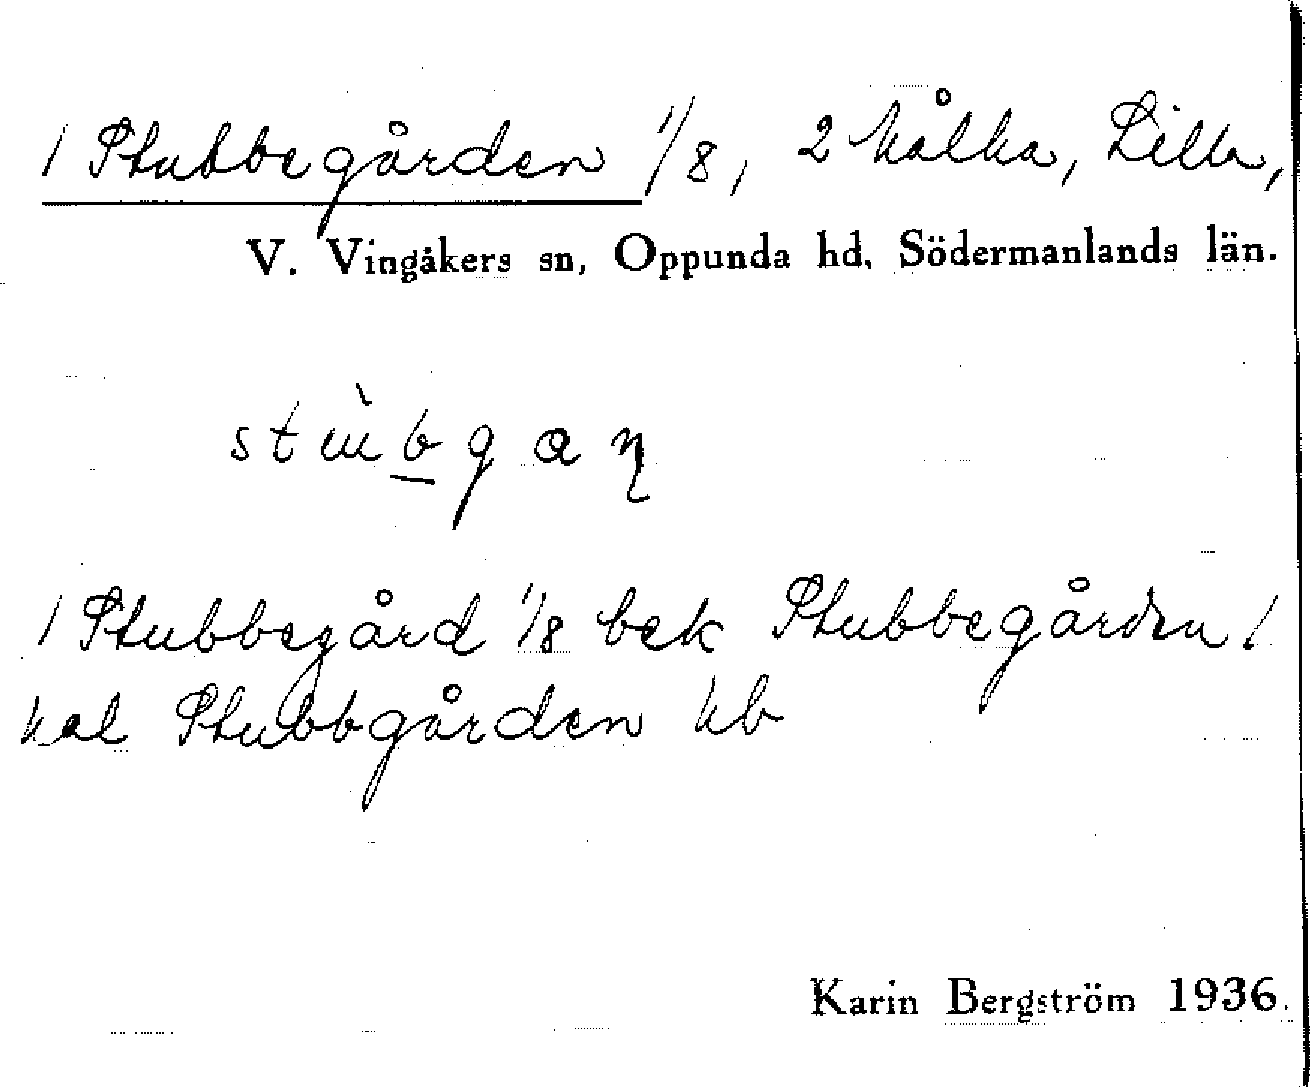 1 Stubbegården 1/8, 2 Kålka, Lilla,
V. Vingåkers sn, Oppunda hd, Södermanlands län.
1 Stubbegård 1/8 bek Stubbegården 1
kal Stubbgården kb
Karin Bergström 1936.